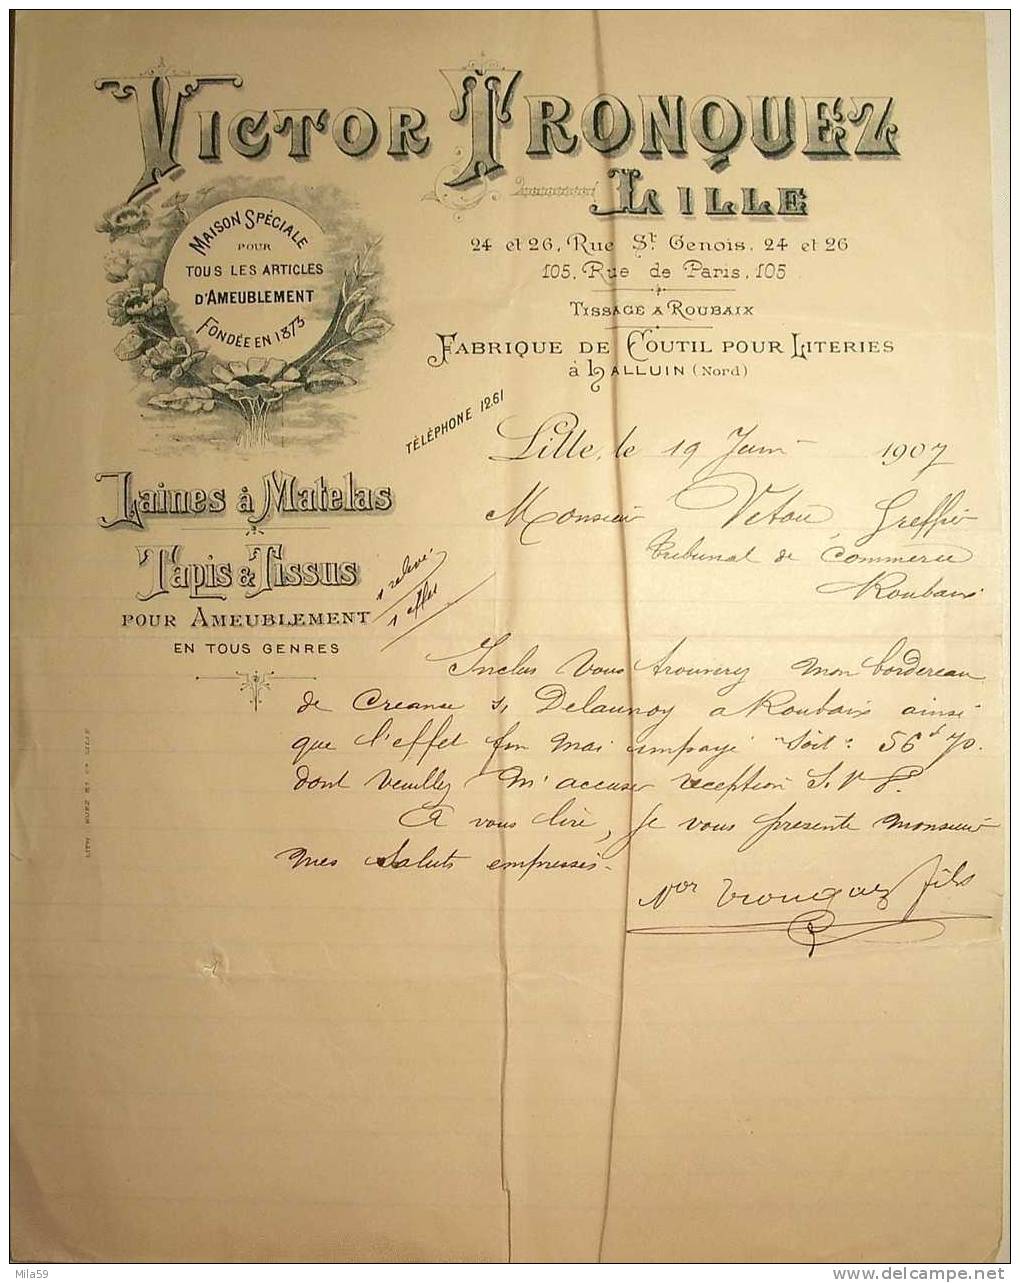 VICTOR TRONQUEZ
LILLE
24 et 26, Rue St Genois, 24 et 26
105, Rue de Paris, 105
TISSAGE A ROUBAIX
FABRIQUE DE COUTIL POUR LITERIES
à HALLUIN (Nord)
MAISON SPÉCIALE
POUR
TOUS LES ARTICLES
D'AMEUBLEMENT
FONDÉE EN 1873
TÉLÉPHONE 12.61
Laines à Matelas
Tapis & Tissus
POUR AMEUBLEMENT
EN TOUS GENRES
Lille, le 19 Juin 1907
Monsieur Vetou, Greffier
Tribunal de Commerce
Roubaix
1 relevé
1 effet
Inclus vous trouverez mon bordereau
de Creance s/ Delaunoy a Roubaix ainsi
que l'effet fin Mai impayé soit: 56 f 70.
dont veuillez m'accuser reception S.V.P.
A vous lire, je vous presente monsieur
mes saluts empressés.
Vor Tronquez fils
LITH. ET Cie LILLE
Mila59
delcampe.net